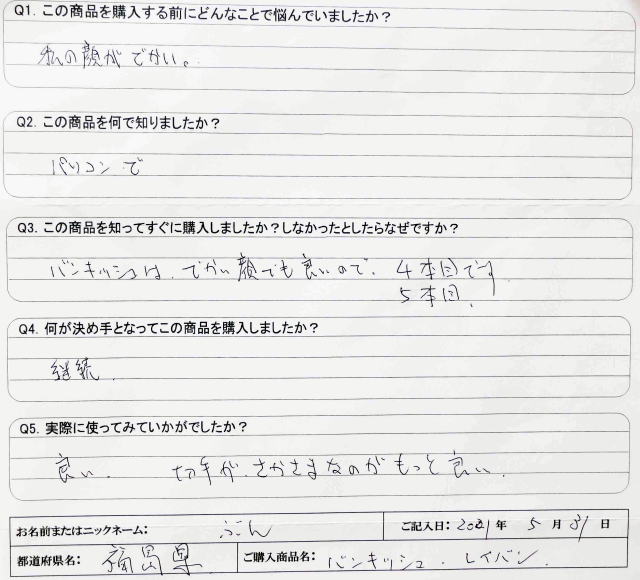 Q1. この商品を購入する前にどんなことで悩んでいましたか？
私の顔がでかい。
Q2. この商品を何で知りましたか？
パソコンで
Q3. この商品を知ってすぐに購入しましたか？しなかったとしたらなぜですか？
バンキッシュは、でかい顔でも良いので、4本目です
5本目、
Q4. 何が決め手となってこの商品を購入しましたか？
継続、
Q5. 実際に使ってみていかがでしたか？
良い、 切手が、さかさまなのがもっと良い、
お名前またはニックネーム： ぶん ご記入日：2021年 5月31日
都道府県名： 福島県 ご購入商品名： バンキッシュ、レイバン